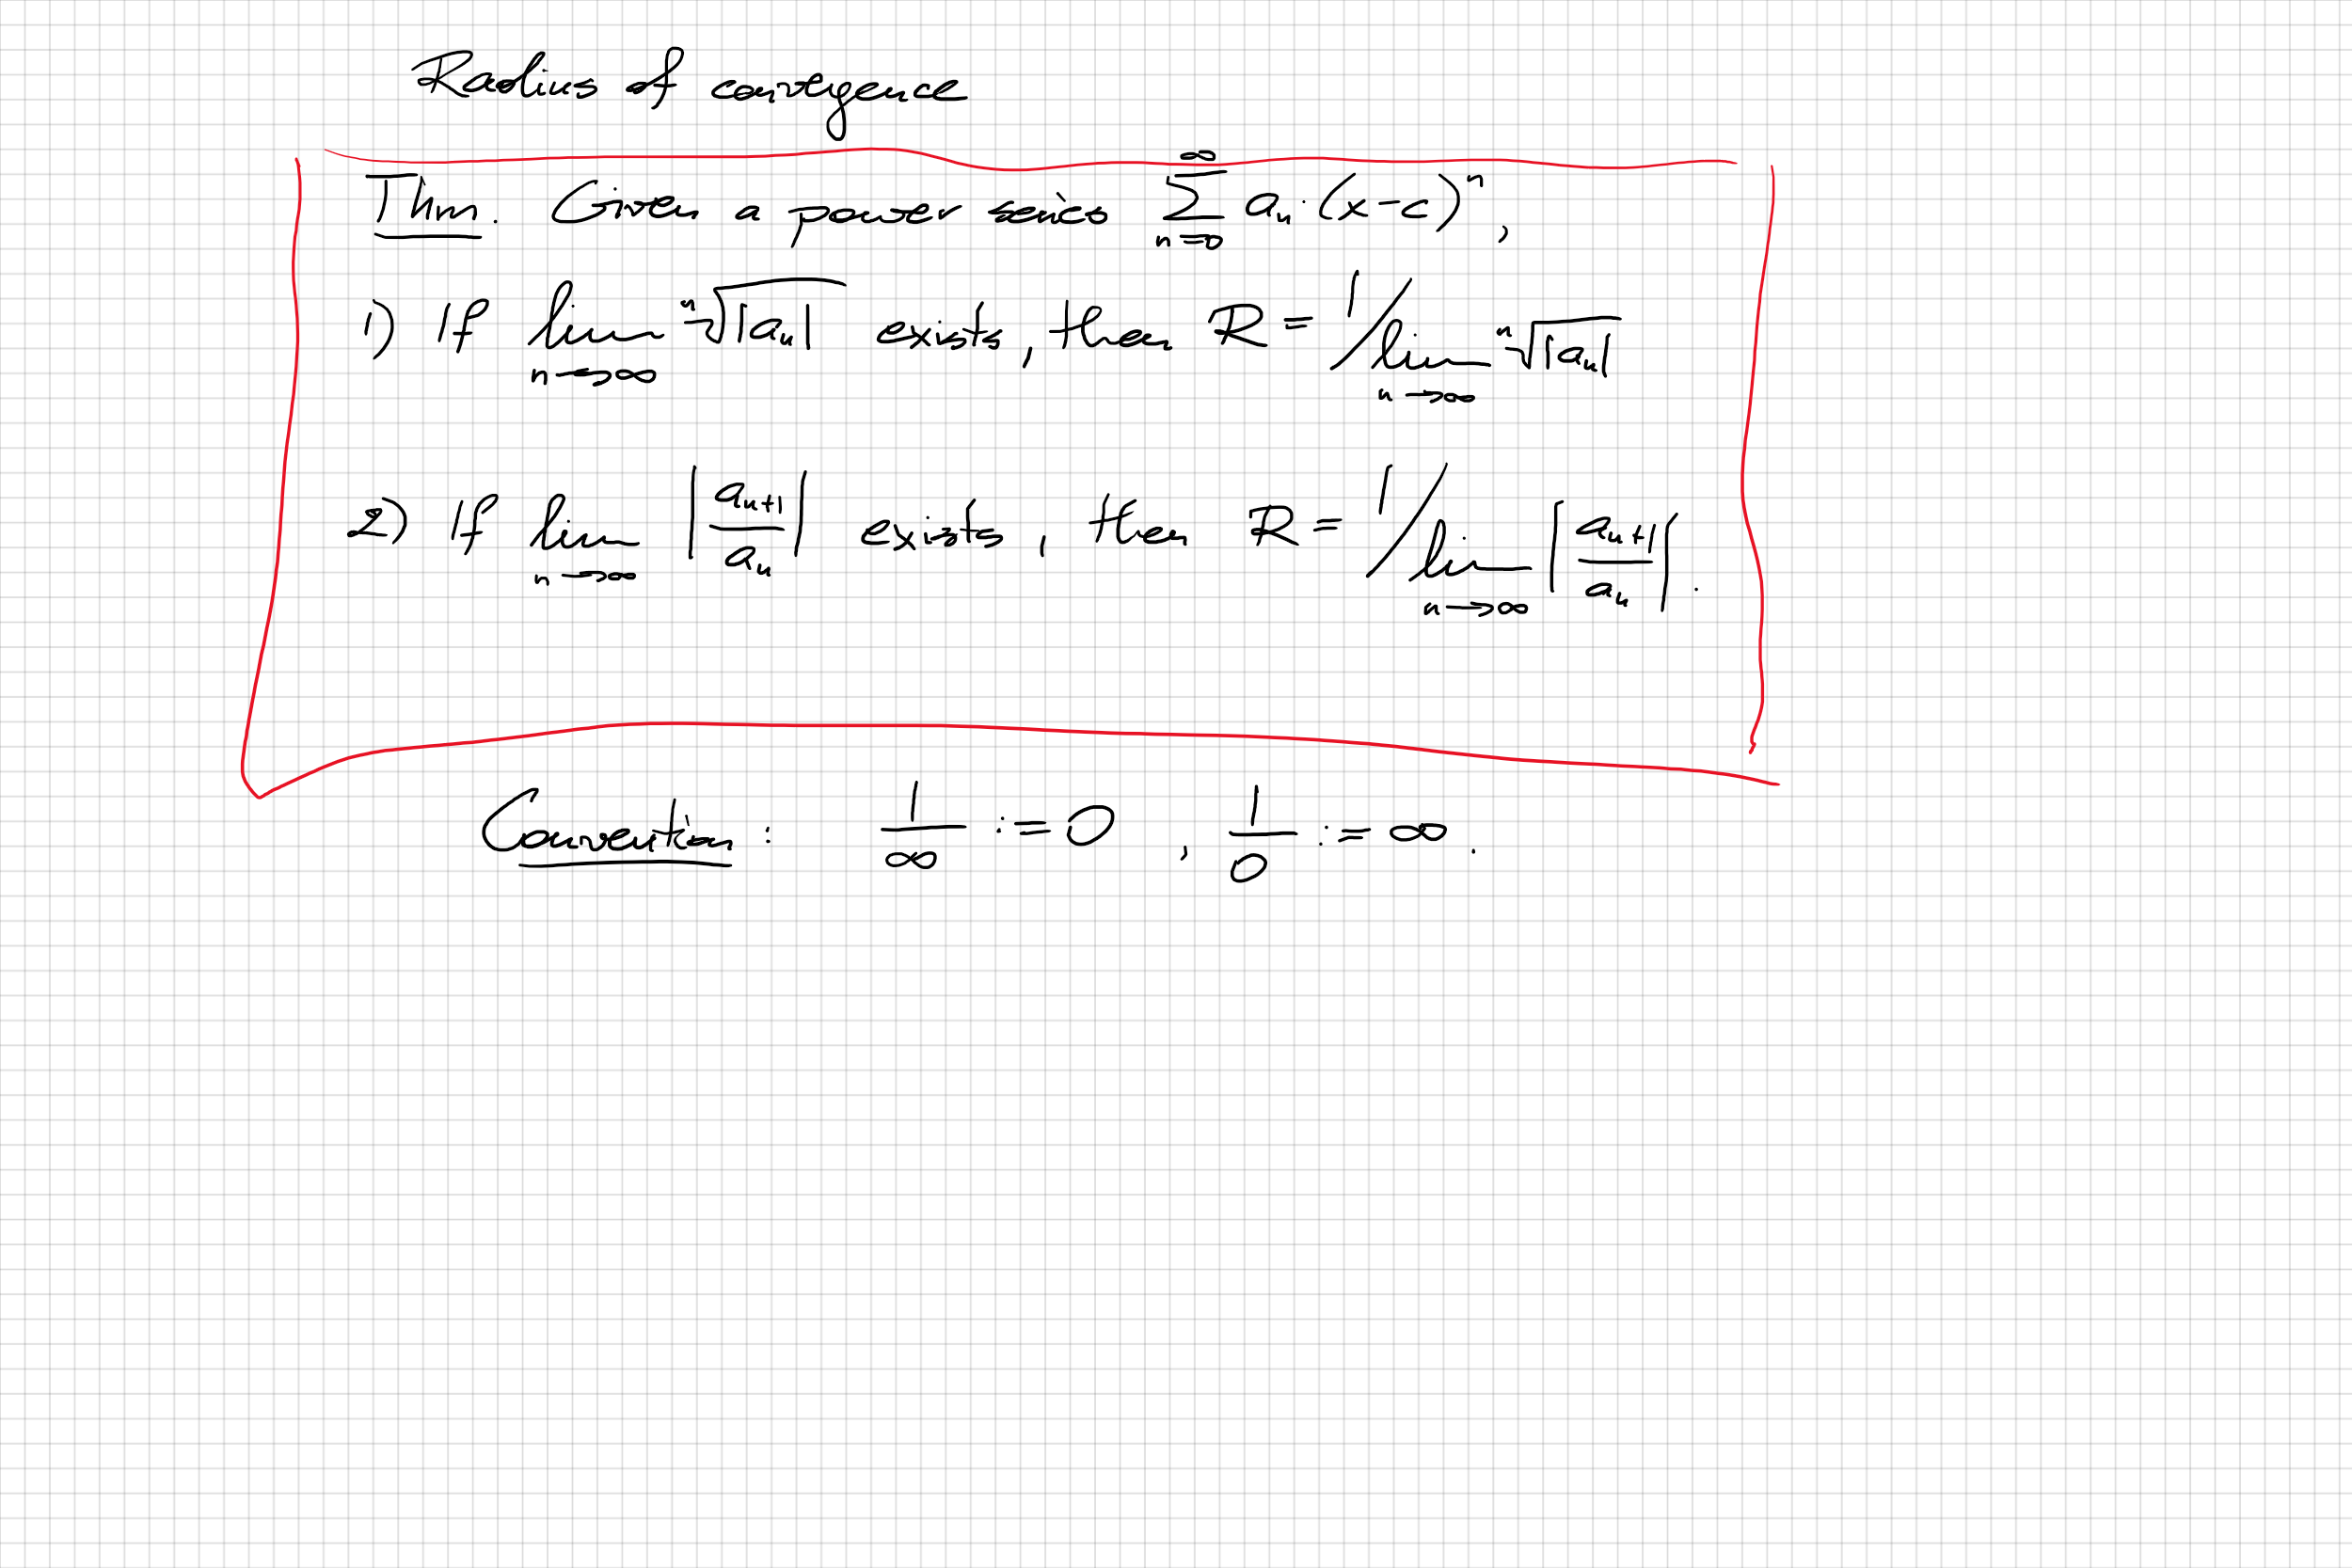 Radius of convergence
Thm. Given a power series $\sum_{n=0}^{\infty} a_n \cdot (x-c)^n$,
1) If $\lim_{n \to \infty} \sqrt[n]{|a_n|}$ exists, then $R = 1 / \lim_{n \to \infty} \sqrt[n]{|a_n|}$
2) If $\lim_{n \to \infty} \left| \frac{a_{n+1}}{a_n} \right|$ exists, then $R = 1 / \lim_{n \to \infty} \left| \frac{a_{n+1}}{a_n} \right|$.
Convention: $\frac{1}{\infty} := 0$, $\frac{1}{0} := \infty$.